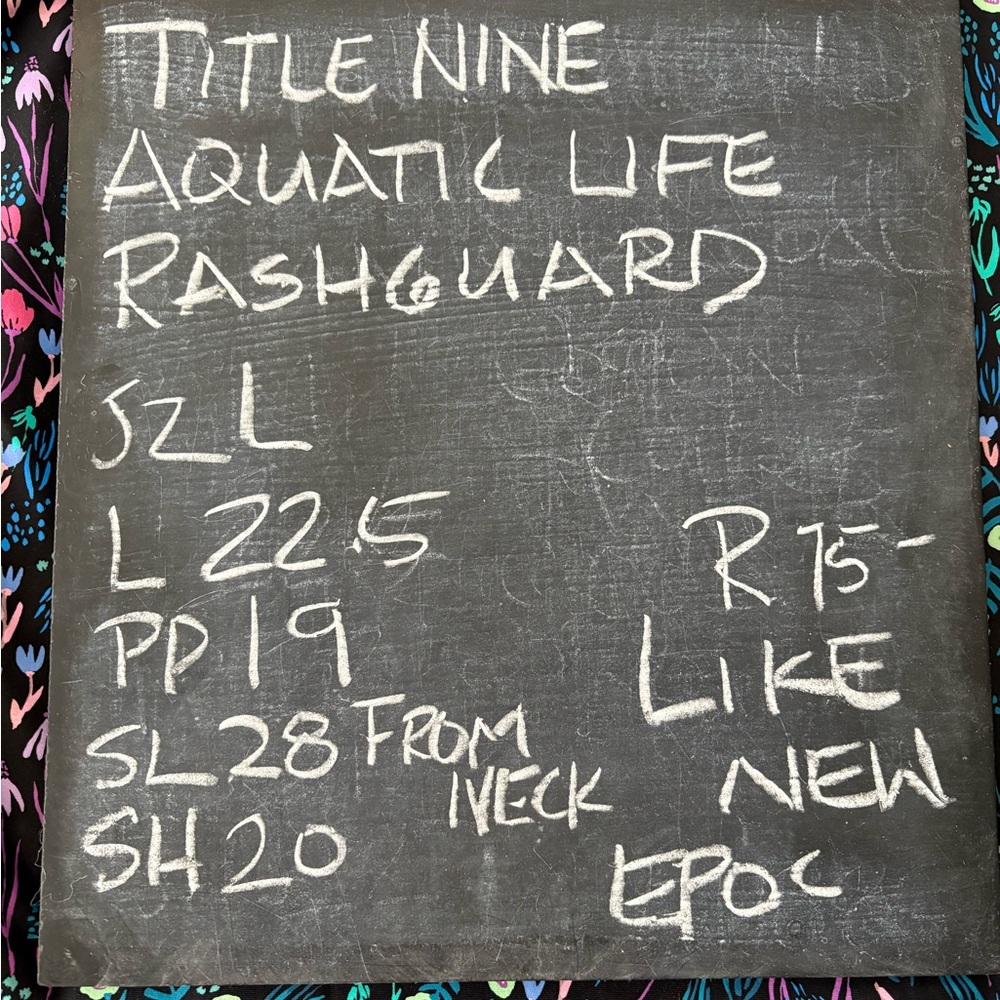 TITLE NINE
AQUATIC LIFE
RASHGUARD
SZ L
L 22.5
PP 19
SL 28 FROM
NECK
SH 20
R 75-
LIKE
NEW
EPOC